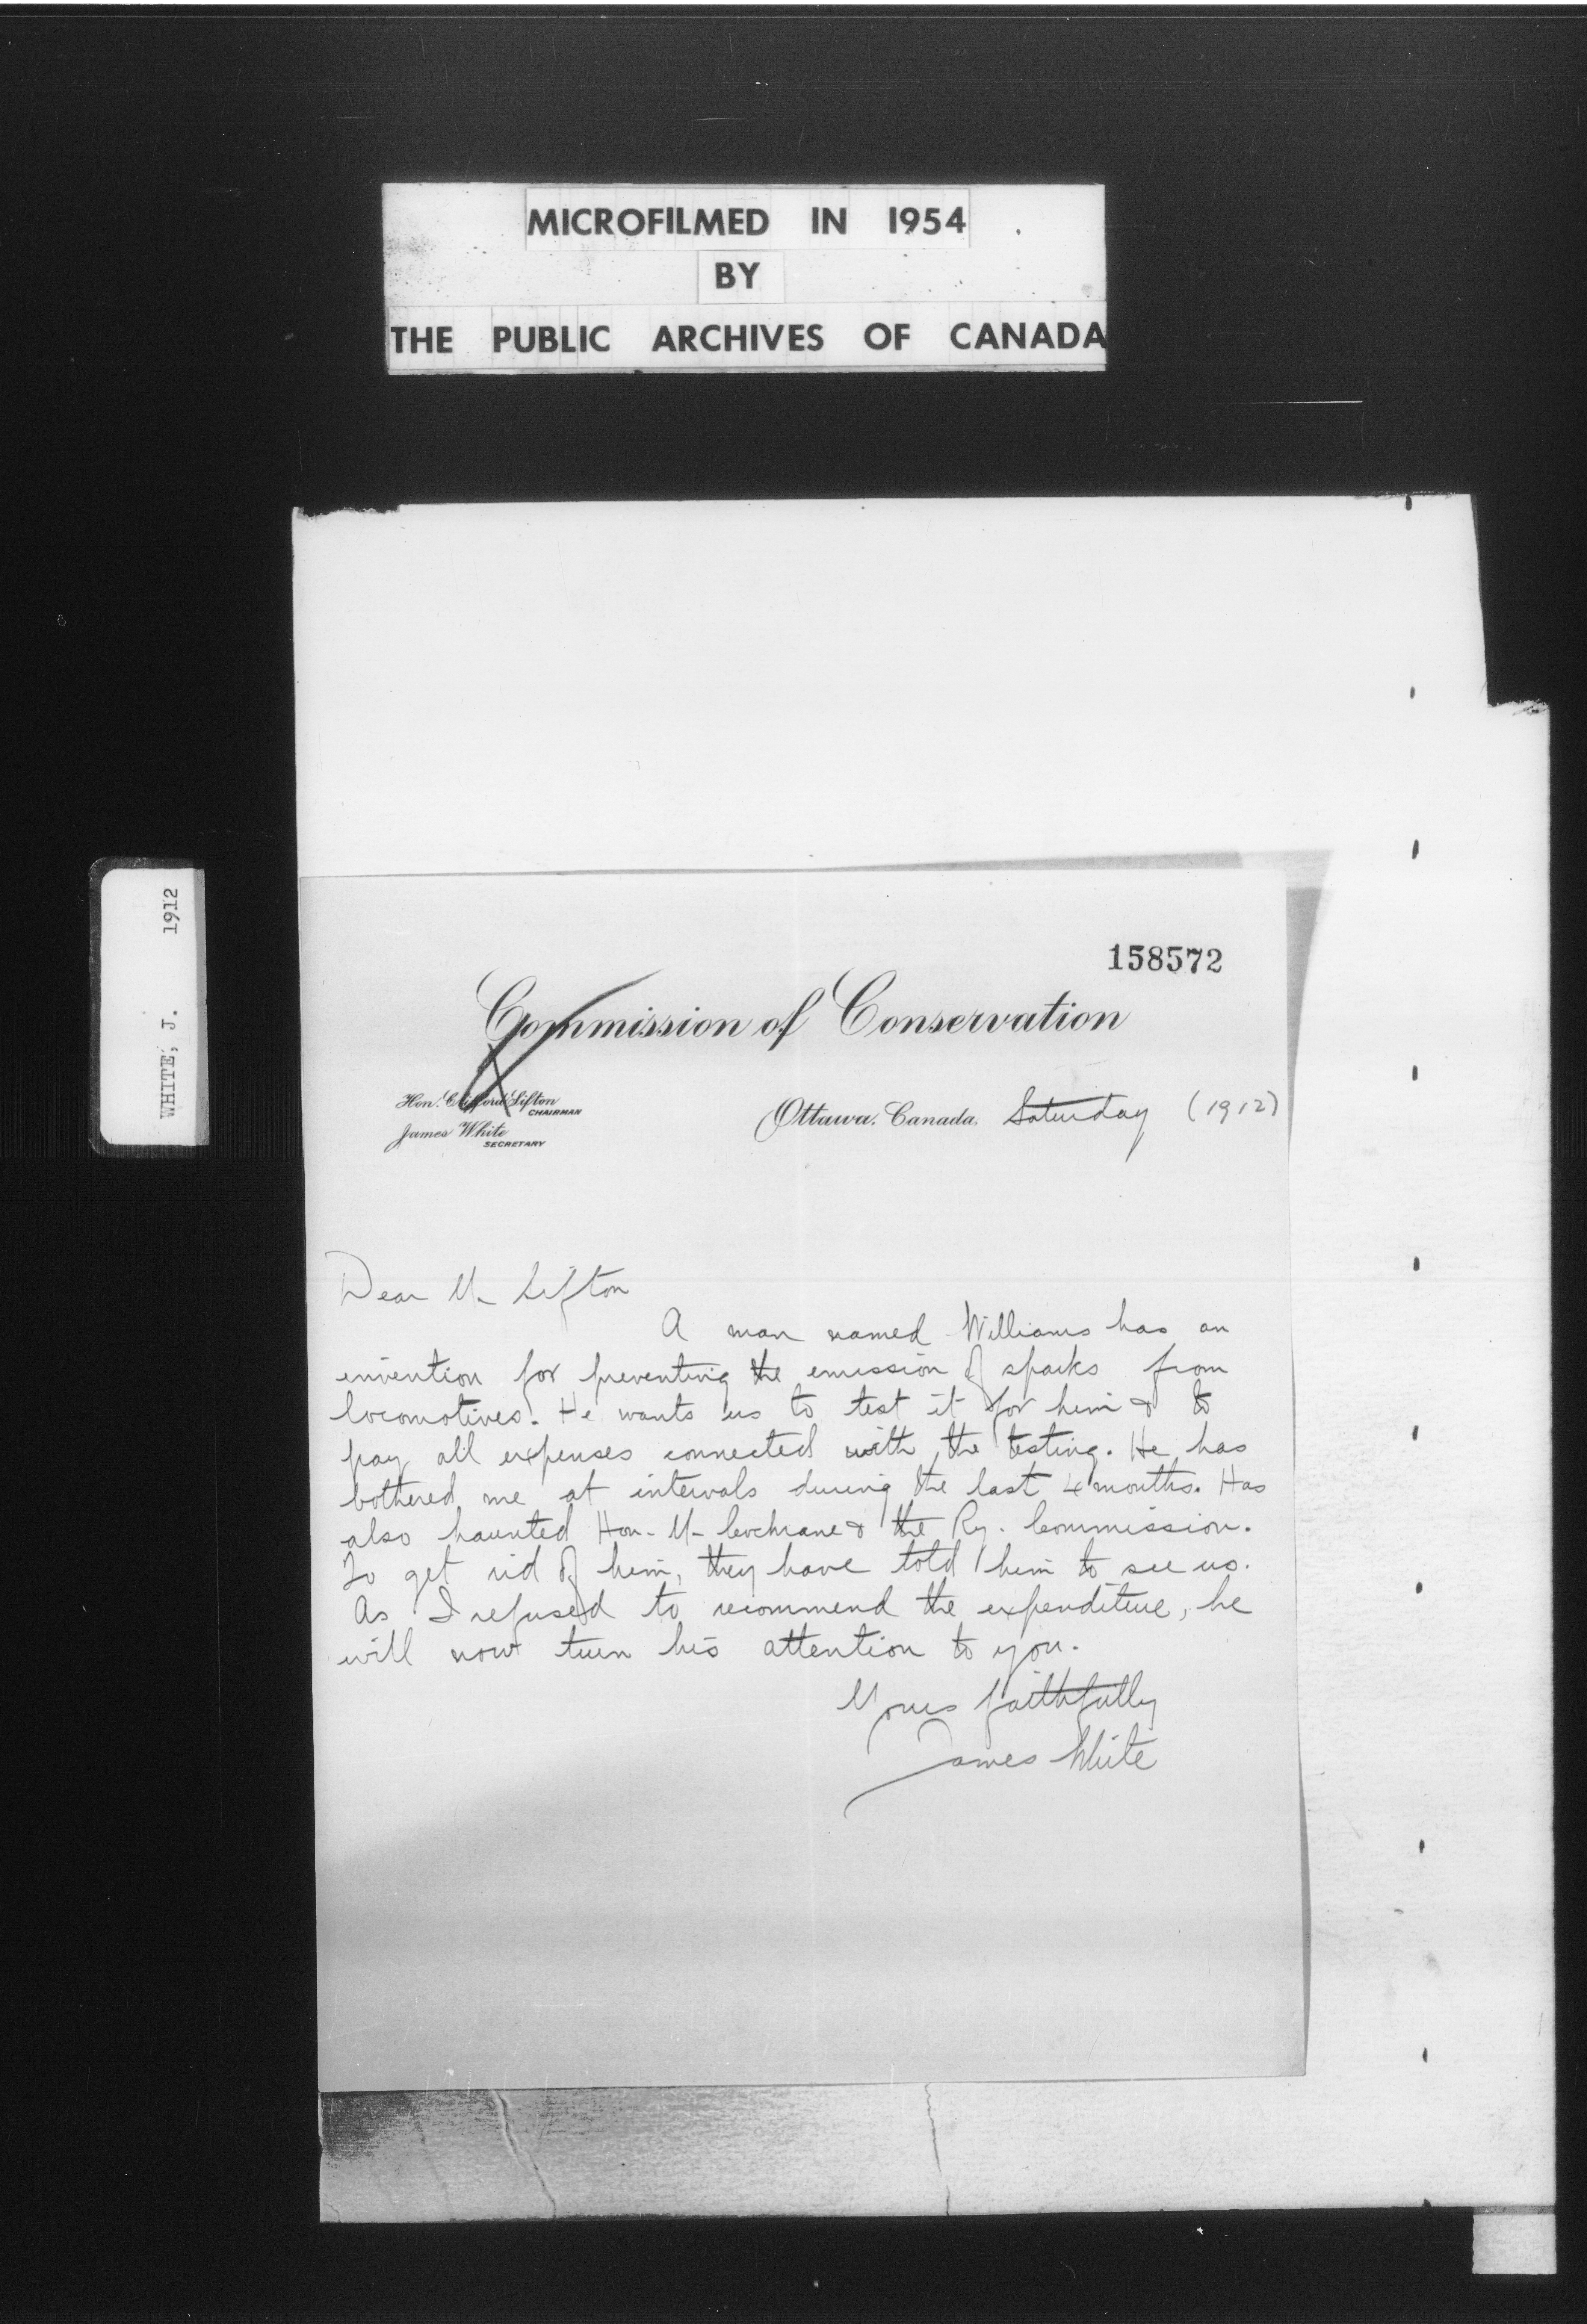 MICROFILMED IN 1954
BY
THE PUBLIC ARCHIVES OF CANADA
WHITE, J. 1912
158572
Commission of Conservation
Hon. Clifford Sifton
CHAIRMAN
James White
SECRETARY
Ottawa, Canada, Saturday (1912)
Dear Mr Sifton
A man named Williams has an
invention for preventing the emission of sparks from
locomotives. He wants us to test it for him & to
pay all expenses connected with the testing. He has
bothered me at intervals during the last 4 months. Has
also haunted Hon. Mr Cochrane & the Ry. Commission.
To get rid of him, they have told him to see us.
As I refused to recommend the expenditure, he
will now turn his attention to you.
Yours faithfully
James White